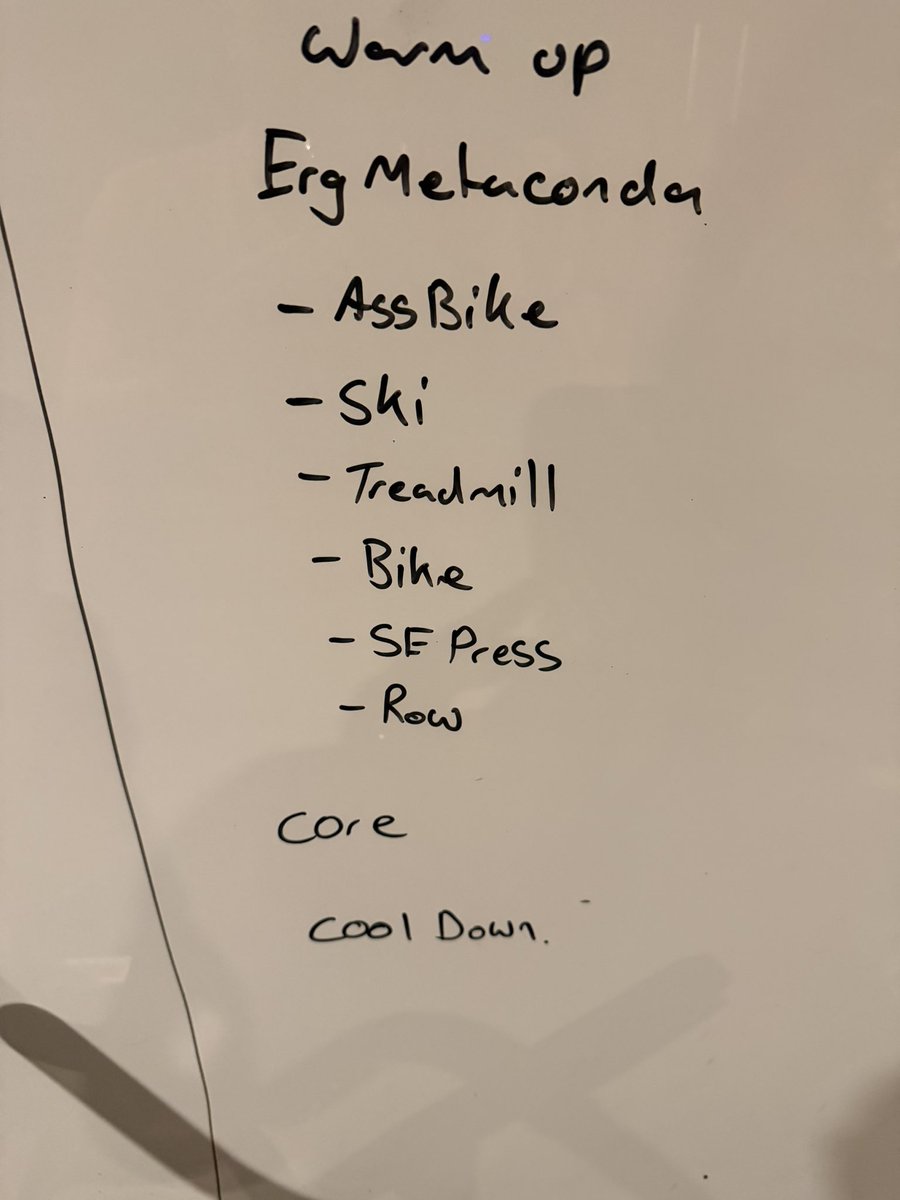 Warm up
Erg Metaconda
- AssBike
- Ski
- Treadmill
- Bike
- SE Press
- Row
Core
Cool Down.